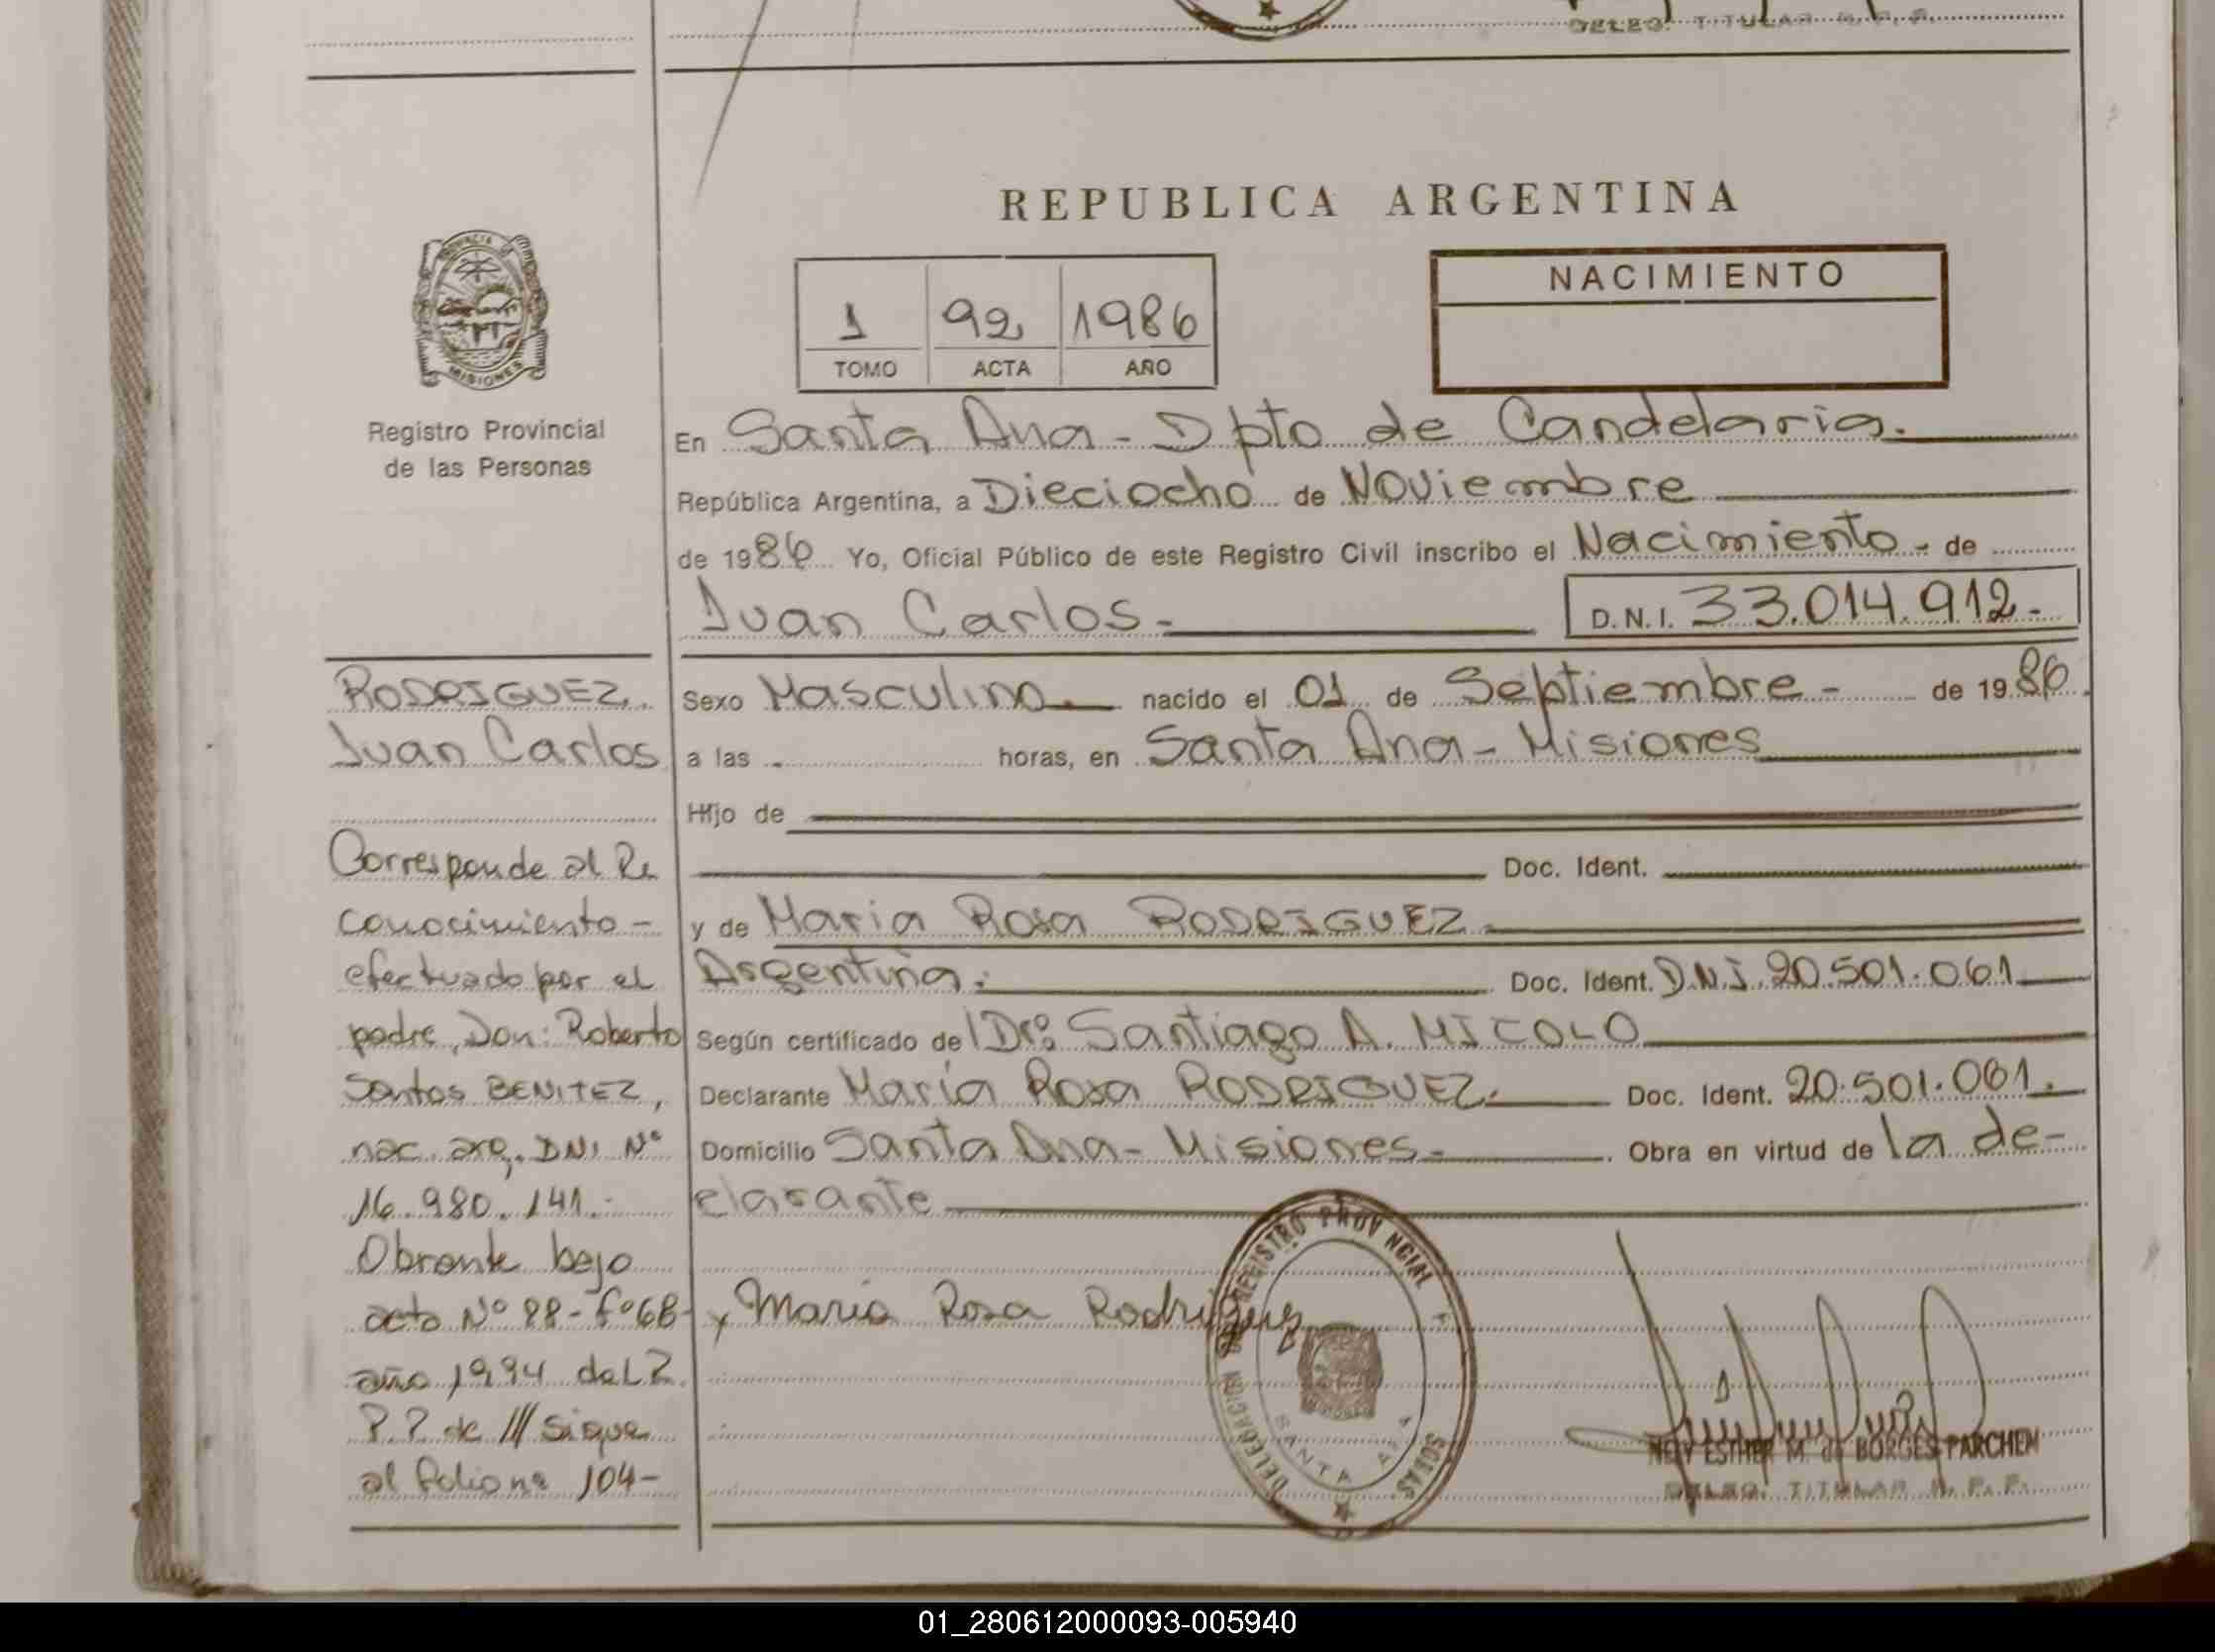 DELEG. TITULAR R. P. P.
REPUBLICA ARGENTINA
PROVINCIA DE
MISIONES
Registro Provincial
de las Personas
1 92 1986
TOMO ACTA AÑO
NACIMIENTO
En Santa Ana - Dpto de Candelaria.
República Argentina, a Dieciocho de Noviembre
de 1986 Yo, Oficial Público de este Registro Civil inscribo el Nacimiento - de
Juan Carlos.- D.N.I. 33.014.912.-
RODRIGUEZ.
Juan Carlos
Sexo Masculino nacido el 01 de Septiembre - de 1986
a las - horas, en Santa Ana - Misiones
Hijo de
Doc. Ident.
y de Maria Rosa RODRIGUEZ.-
Argentina.- Doc. Ident. D.N.I. 20.501.061
Según certificado de Dr: Santiago A. MICOLO
Declarante María Rosa RODRIGUEZ.- Doc. Ident. 20.501.061.
Domicilio Santa Ana - Misiones.- Obra en virtud de la de-
clarante
Corresponde al Re
conocimiento -
efectuado por el
padre, Don: Roberto
Santos BENITEZ,
nac. arg. DNI Nº
16.980.141.-
Obrante bajo
acta Nº 88 - fº 68 -
año 1994 del R.
P.P. de /// Sigue
al folio nº 104-
x Maria Rosa Rodriguez
DELEGACION REGISTRO PROVINCIAL
SANTA ANA
NELY ESTHER M. de BORGES PARCHEM
DELEG. TITULAR R. P. P.
01_280612000093-005940